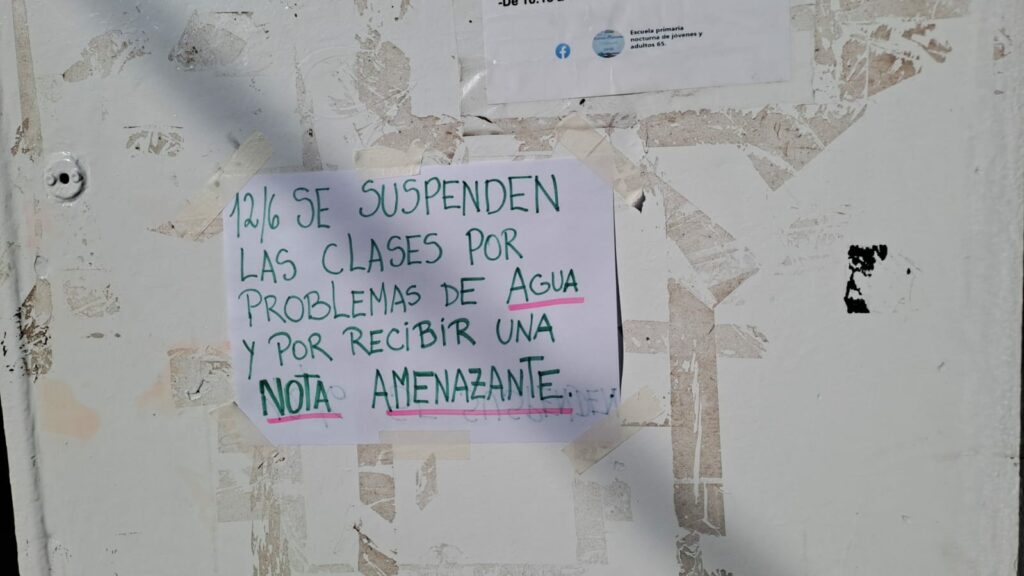 Escuela primaria
nocturna de jóvenes y
adultos 65.
12/6 SE SUSPENDEN
LAS CLASES POR
PROBLEMAS DE AGUA
Y POR RECIBIR UNA
NOTA AMENAZANTE.